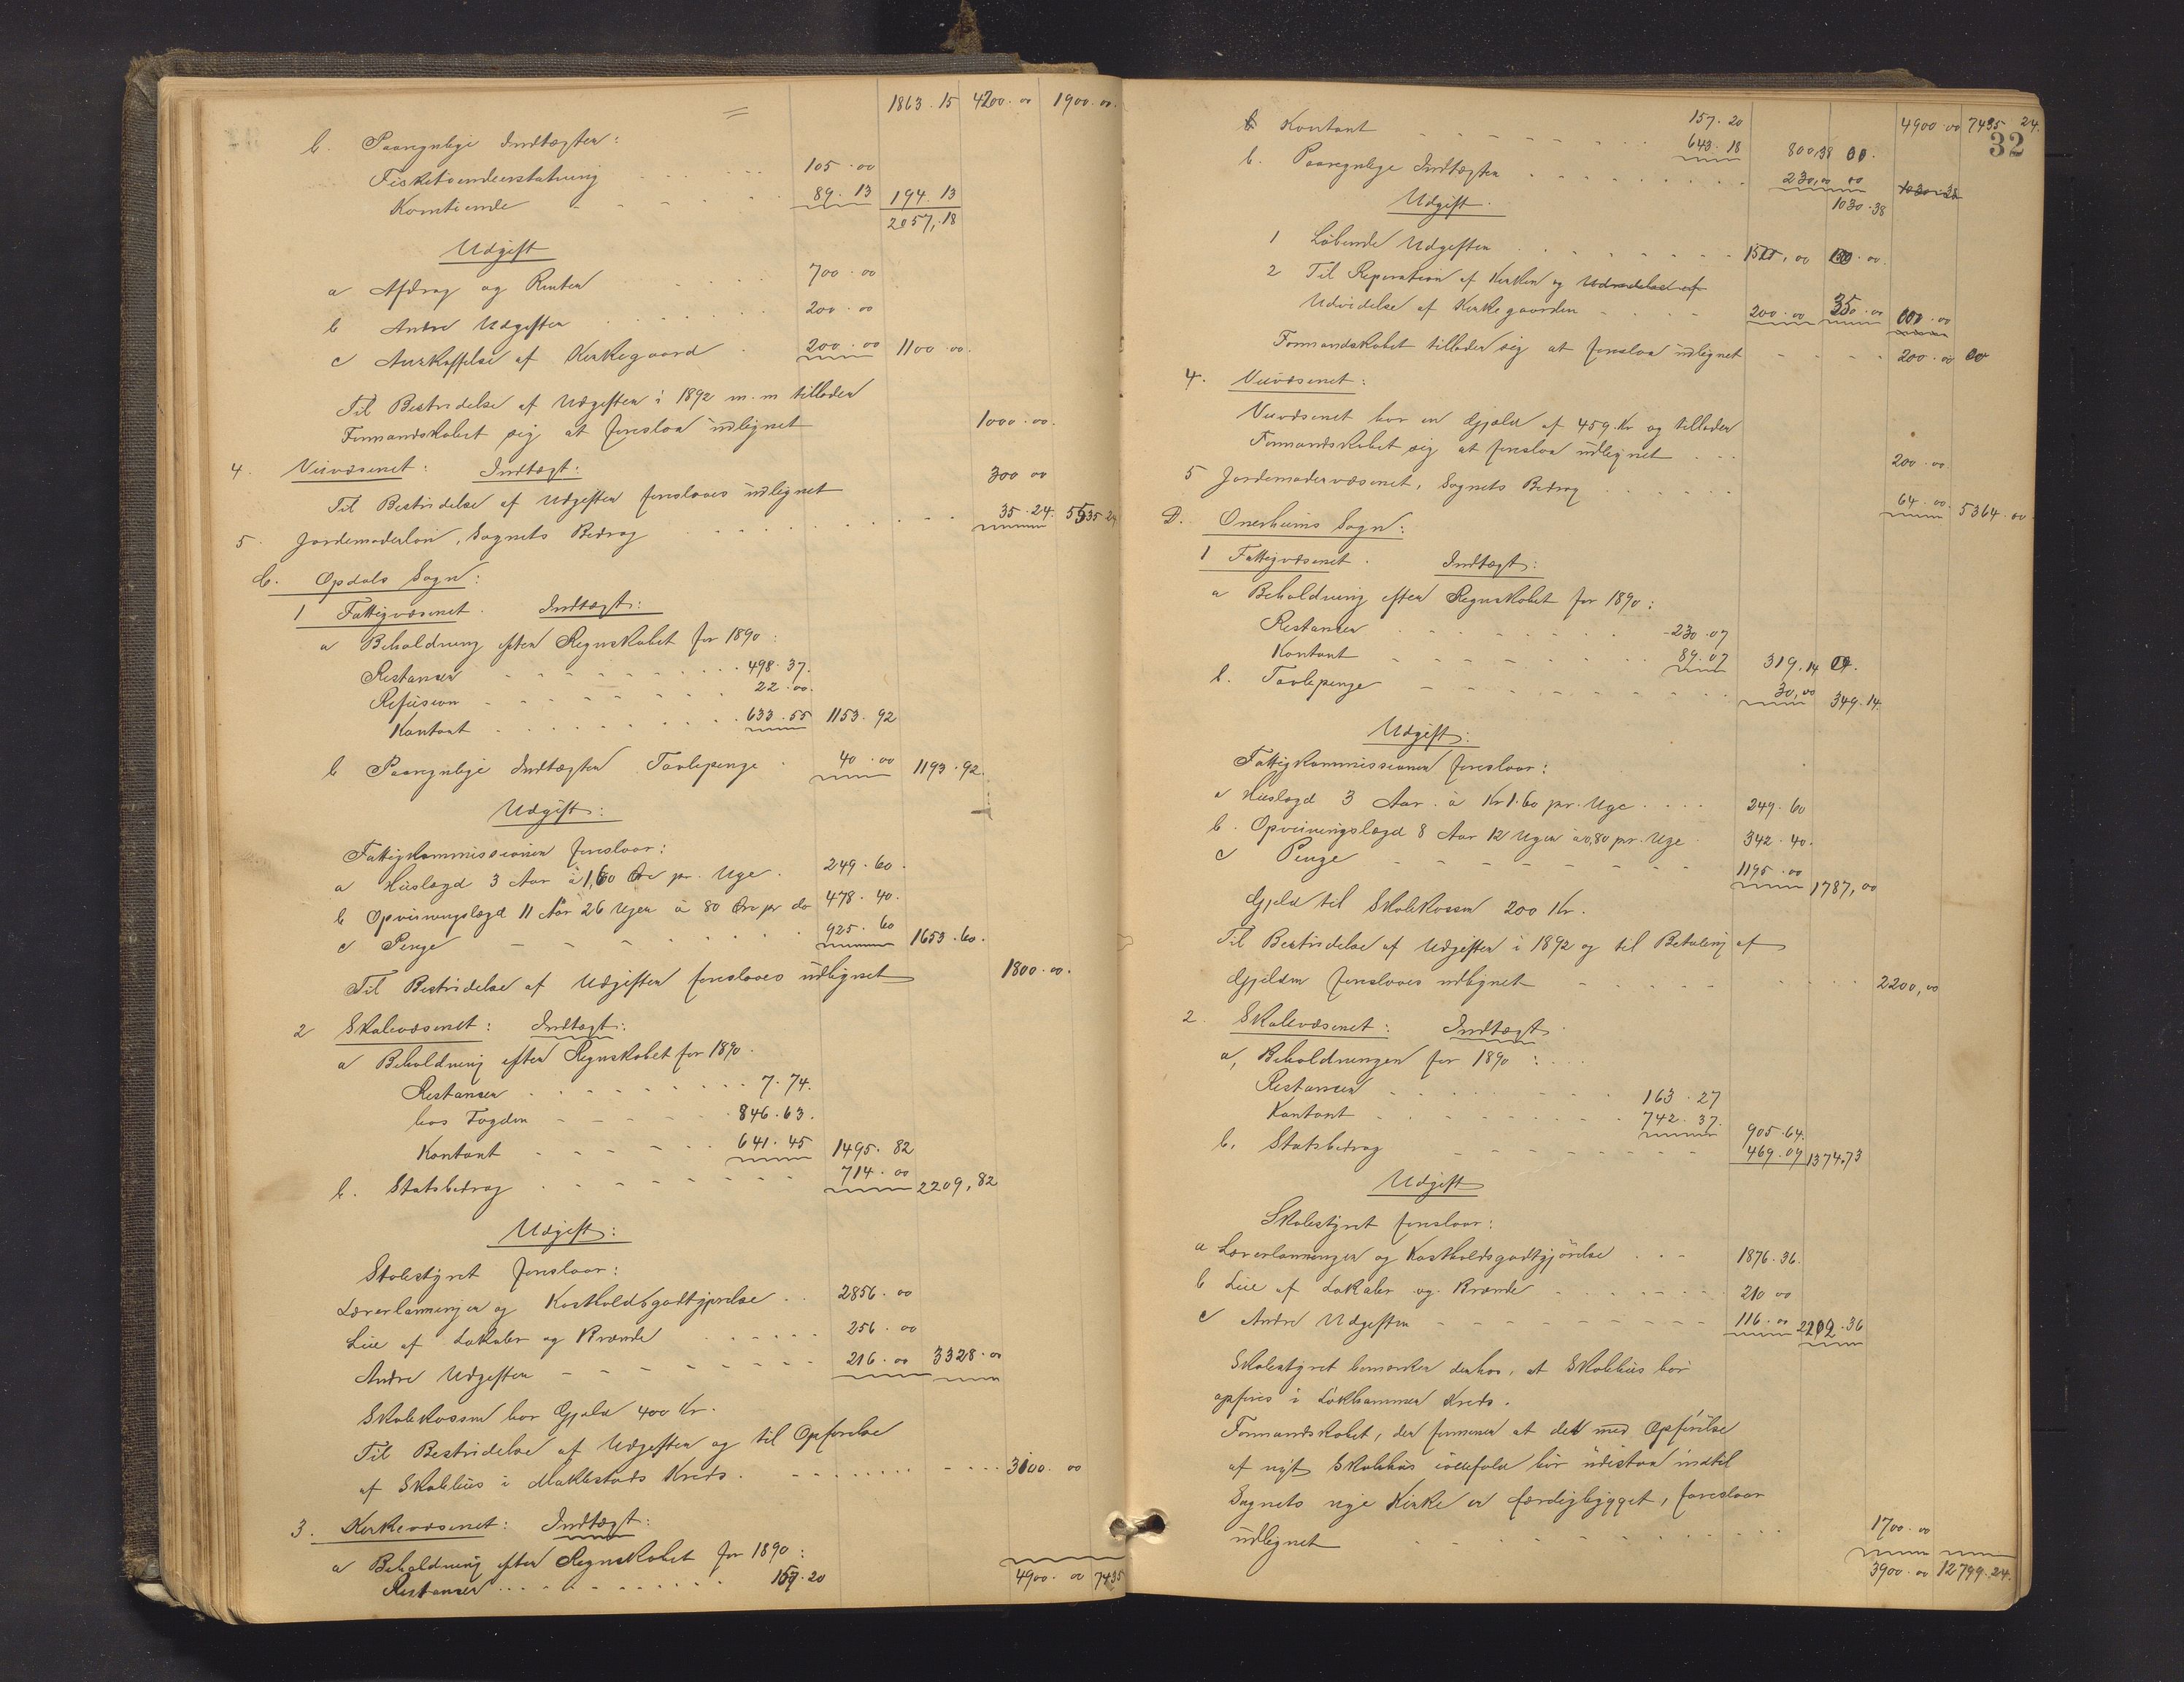 1863.15 4200.00 1900.00.
b. Paaregnelige Indtægter:
Fisketiendeerstatning 105.00
Korntiende 89.13 194.13
2057,18
Udgift
a Afdrag og Renter 700.00
b Andre Udgifter 200.00
c Anskaffelse af Kirkegaard 200.00 1100 00.
Til Bestridelse af Udgifter i 1892 m.m tillader
Formandskabet sig at foreslaa udlignet 1000.00.
4. Veivæsenet: Indtægt:
Til Bestridelse af Udgifter foreslaaes udlignet 300 00
5. Jordemoderløn, Sognets Bidrag 35.24. 5535 24
C. Opdals Sogn:
1 Fattigvæsenet. Indtægt:
a Beholdning efter Regnskabet for 1890:
Restancer 498.37.
Refusion 22.00.
Kontant 633.55 1153.92
b Paaregnelige Indtægter Tavlepenge 40.00 1193.92.
Udgift:
Fattigkommissionen foreslaar:
a Huslægd 3 Aar à 1,60 Øre pr. Uge. 249.60.
b Opvisningslægd 11 Aar 26 Uger à 80 Øre pr do 478.40.
c Penge 925.60 1653.60.
Til Bestridelse af Udgifter foreslaaes udlignet 1800.00.
2 Skolevæsenet: Indtægt:
a Beholdning efter Regnskabet for 1890.
Restancer 7.74.
hos Fogden 846.63.
Kontant 641.45 1495.82
b. Statsbidrag 714.00 2209,82
Udgift:
Skolestyret foreslaar:
Lærerlønninger og Kostholdsgodtgjørelse 2856.00
Leie af Lokaler og Brænde 256.00
Andre Udgifter 216.00 3328.00
Skolekassen har Gjæld 400 Kr.
Til Bestridelse af Udgifter og til Opførelse
af Skolehus i Kreds. 3100.00
3. Kirkevæsenet: Indtægt:
a Beholdning efter Regnskabet for 1890:
Restancer 157.20
4900.00 7435
32
157.20 4900.00 7435 24.
Kontant 643.18 800,38
b. Paaregnelige Indtægter 230,00 1030.38
1030.38
Udgift.
1 Løbende Udgifter 150,00
2 Til Reparation af Kirken og Udvidelse af
Udvidelse af Kirkegaarden 200.00 350.00
Formandskabet tillader sig at foreslaa udlignet 200.00
4. Veivæsenet:
Veivæsenet har en Gjæld af 459 Kr og tillader
Formandskabet sig at foreslaa udlignet 200.00
5 Jordemodervæsenet, Sognets Bidrag 64.00. 5364.00
D. Onerheims Sogn:
1 Fattigvæsenet. Indtægt:
a Beholdning efter Regnskabet for 1890:
Restancer 230.07
Kontant 89.07 319.14
b. Tavlepenge 30,00 349.14.
Udgift:
Fattigkommissionen foreslaar:
a Huslægd 3 Aar à Kr 1.60 pr. Uge 249.60
b. Opvisningslægd 8 Aar 12 Uger à 0,80 pr. Uge 342.40.
c Penge 1195.00 1787,00
Gjæld til Skolekassen 200 Kr.
Til Bestridelse af Udgifter i 1892 og til Betaling af
Gjælden foreslaaes udlignet 2200,00
2. Skolevæsenet: Indtægt
a, Beholdningen for 1890:
Restancer 163.27
Kontant 742.37. 905.64.
b. Statsbidrag 469.09 1374.73
Udgift
Skolestyret foreslaar:
a Lærerlønninger og Kostholdsgodtgjørelse 1876.36.
b Leie af Lokaler og Brænde 210 00
c Andre Udgifter 116.00 2202.36
Skolestyret bemærker derhos, at Skolehus bør
opføres i Lokhammer Kreds.
Formandskabet, der formener at det med Opførelse
af nyt Skolehus iallefald bør udestaa indtil
Sognets nye Kirke er færdigbygget, foreslaar
udlignet 1700.00
3900.00 12799.24.